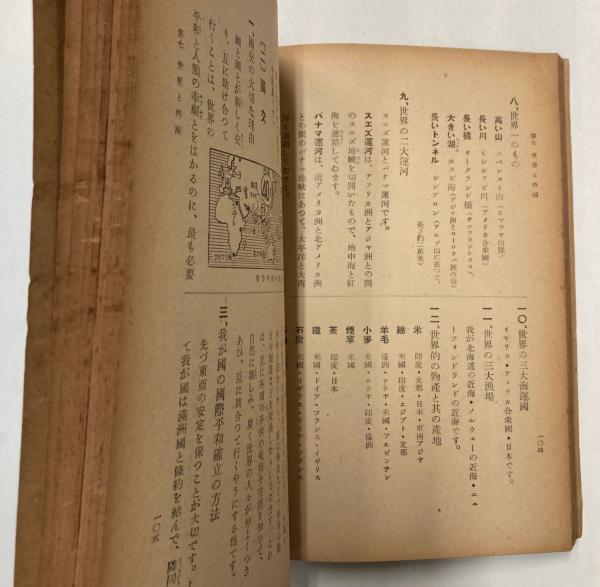 第七 世界と外國
八、世界一のもの
高い山 エベレスト山(ヒマラヤ山脈)
長い川 ミシシッピ川(アメリカ合衆國)
長い橋 オークランド橋(サンフランシスコ)
大きい湖 カスピ海(アジヤ洲とヨーロッパ洲の境)
長いトンネル シンプロン(アルプス山に在つて、
長さ約二萬米)
九、世界の二大運河
スエズ運河とパナマ運河です。
スエズ運河は、アフリカ洲とアジヤ洲との間
のスエズ地峡を切開いたもので、地中海と紅
海を連絡してゐます。
パナマ運河は、南アメリカ洲と北アメリカ洲
との間のパナマ地峡にあつて、太平洋と大西
一〇、世界の三大海運國
イギリス・アメリカ合衆國・日本です。
一一、世界の三大漁場
我が北海道の近海・ノルウェーの近海・ニュ
ーファンドランドの近海です。
一二、世界的の物產と其の產地
米 印度・支那・日本・東南アジヤ
綿 米國・印度・エジプト・支那
羊毛 濠洲・ロシヤ・米國・アルゼンチン
小麥 米國・ロシヤ・印度・濠洲
煙草 米國
茶 印度・日本
鐵 米國・ドイツ・フランス・イギリス
石炭 米國・イギリス・ドイツ・フランス
一〇四
(二) 國交
一、國交の大切な理由
國と國とが親しく交
り、互に助け合つて
行くことは、世界の
平和と人類の幸福とをはかるのに、最も必要
第七 世界と外國
は、互に外國の子供の氣持や生活を知つて、
自然に親しみ、廣く世界の人々が仲よくつき
あひ、互に助合つて行くやうにする爲です。
三、我が國の國際平和確立の方法
先づ東亞の安定を保つことが大切です。
て我が國は滿洲國と條約を結んで、隣國
一〇五